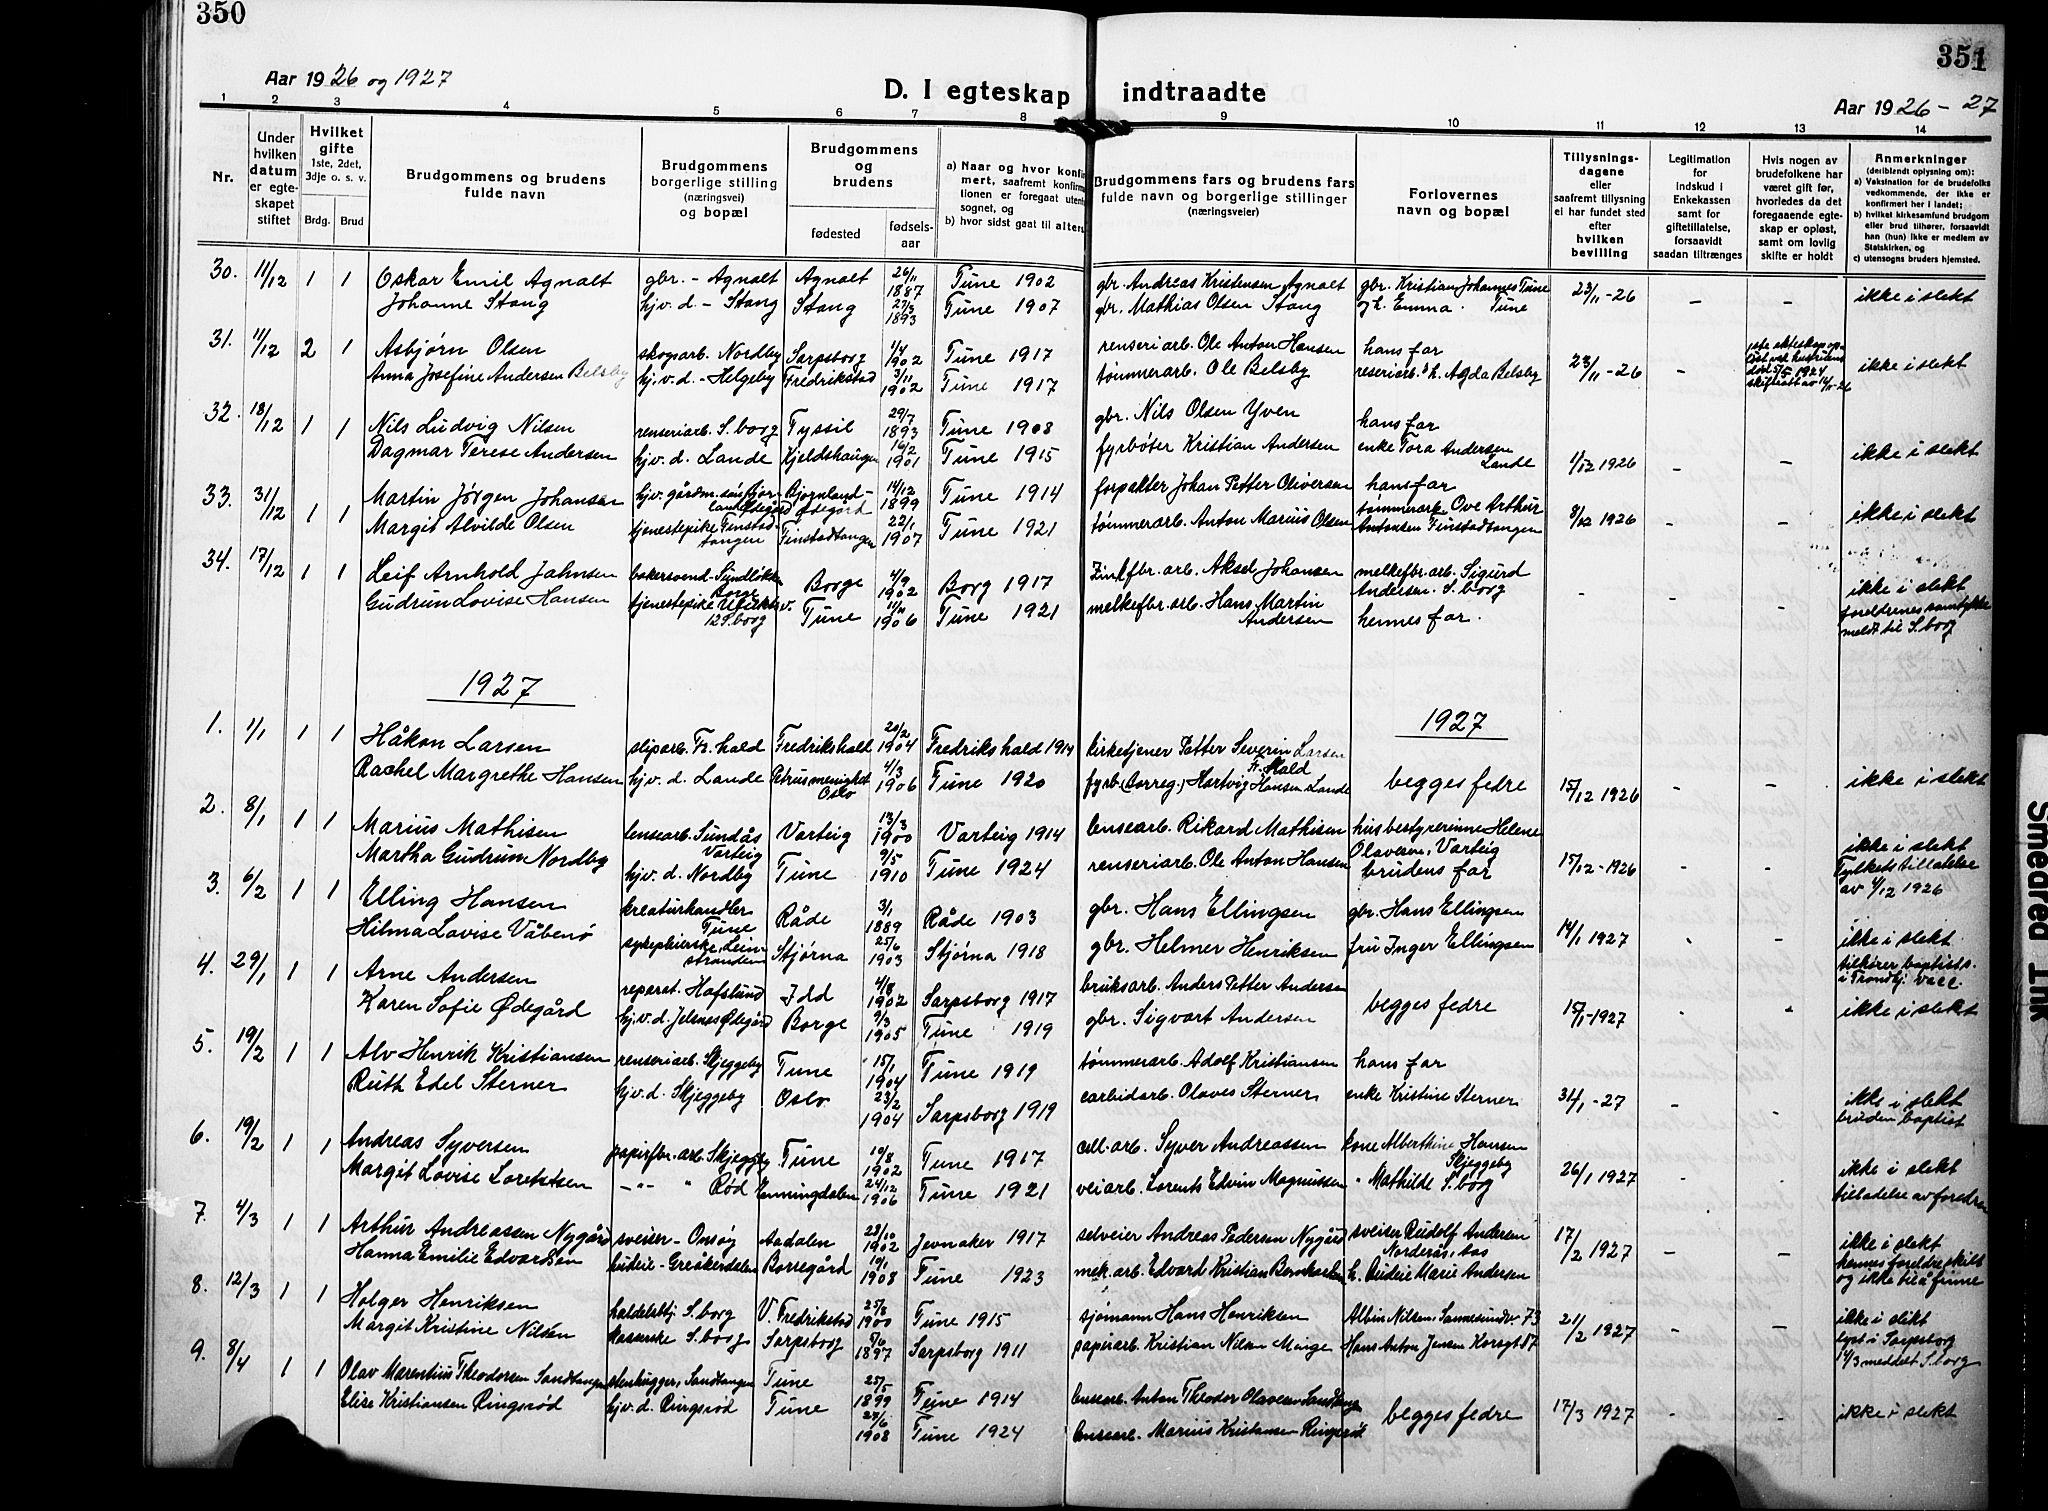 350
351
Aar 1926 og 1927
D. I egteskap indtraadte
Aar 1926-27
1 2 3 4 5 6 7 8 9 10 11 12 13 14
Nr.
Under hvilken datum er egteskapet stiftet
Hvilket gifte 1ste, 2det, 3dje o. s. v.
Brdg. Brud
Brudgommens og brudens fulde navn
Brudgommens borgerlige stilling (næringsvei) og bopæl
Brudgommens og brudens
fødested
fødsels-aar
a) Naar og hvor konfirmert,
b) hvor sidst gaat til alters
Brudgommens fars og brudens fars fulde navn og borgerlige stillinger (næringsveier)
Forlovernes navn og bopæl
Tillysningsdagene eller saafremt tillysning ei har fundet sted efter hvilken bevilling
Legitimation for indskud i Enkekassen samt for giftetillatelse, forsaavidt saadan tiltrænges
Hvis nogen av brudefolkene har været gift før, hvorledes da det foregaaende egteskap er opløst, samt om lovlig skifte er holdt
Anmerkninger (deriblandt oplysning om): a) Vaksination for de brudefolks vedkommende, der ikke er konfirmert her i landet; b) hvilket kirkesamfund brudgom eller brud tilhører, forsaavidt han (hun) ikke er medlem av Statskirken, og c) utensogns bruders hjemsted.
30. 11/12 1 1 Oskar Emil Agnalt gbr. - Agnalt Agnalt 26/11 1887 Tune 1902 gbr. Andreas Kristensen Agnalt gbr. Kristian Johannes Tune 23/11-26 - - ikke i slekt
Johanne Stang hjv. d - Stang Stang 27/3 1893 Tune 1907 gbr. Mathias Olsen Stang og h. Emma Tune
31. 11/12 2 1 Asbjørn Olsen skogsarb. Nordby Sarpsborg 1/4 1902 Tune 1917 renseriarb. Ole Anton Hansen hans far 23/11-26 - ikke i slekt
Anna Josefine Andersen Belsby hj. v. d. - Helgeby Fredrikstad 3/11 1902 Tune 1917 tømmerarb. Ole Belsby Agda Belsby
32. 18/12 1 1 Nils Ludvig Nilsen renseriarb. S.borg Tyssil 29/7 1893 Tune 1908 gbr. Nils Olsen Yven hans far
Dagmar Terese Andersen hjv. d. Lande Kjeldshaugen 16/2 1901 Tune 1915 fyrbøter Kristian Andersen enke Tora Andersen Lande 1/12 1926 - - ikke i slekt
33. 31/12 1 1 Martin Jørgen Johansen Bjørnland-ødegård 14/12 1899 Tune 1914 forpakter Johan Petter Oliversen hans far
Margit Alvilde Olsen tjenestepike Finstadtangen Finstadtangen 22/1 1907 Tune 1921 tømmerarb. Anton Marius Olsen tømmerarb. Ove Arthur Antonsen Finstadtangen 8/12 1926 - - ikke i slekt
34. 17/12 1 1 Leif Arnhold Jahnsen bakersvend - Sundløkka Borge Borge 4/9 1902 Borg 1917 Zinkfbr. arb. Aksel Johansen melkefbr. arb. Sigurd Andersen. S.borg - - - ikke i slekt
Gudrun Lovise Hansen tjenestepike Tune 11/11 1906 Tune 1921 melkefbr. arb. Hans Martin Andersen hennes far. foreldrenes samtykke meldt til S.borg
1927
1927
1. 1/1 1 1 Håkon Larsen sliparb. Fr.hald Fredrikshald 20/2 1904 Fredrikshald 1914 kirketjener Petter Severin Larsen Fr.Hald
Rachel Margrethe Hansen hjv. d. Lande Petrus menighet Oslo 4/3 1906 Tune 1920 Hartvig Hansen Lande begges fedre 15/12 1926 - - ikke i slekt
2. 8/1 1 1 Marius Mathisen lensearb. Sundås Varteig Varteig 13/3 1900 Varteig 1914 lensearb. Rikard Mathisen husbestyrerinne Helene Olavesen, Varteig
Martha Gudrun Nordby hjv. d. Nordby Tune 9/5 1910 Tune 1924 renseriarb. Ole Anton Hansen brudens far 15/12-1926 - - ikke i slekt Fylkets tillatelse av 4/12 1926
3. 6/2 1 1 Elling Hansen kreaturhandler Tune Råde 3/1 1889 Råde 1903 gbr. Hans Ellingsen gbr. Hans Ellingsen
Hilma Lovise Våbenø sykepleierske Leinstranden Stjørna 25/6 1903 Stjørna 1918 gbr. Helmer Henriksen fru Inger Ellingsen 14/1 1927 - - ikke i slekt tilhører baptists. i Trondhj.
4. 29/1 1 1 Arne Andersen reparat. Hafslund Idd 4/8 1902 Sarpsborg 1917 bruksarb. Anders Petter Andersen
Karen Sofie Ødegård hj. v. d. Jelsnes Ødegård Borge 9/3 1905 Tune 1919 gbr. Sigvart Andersen begges fedre 15/1-1927 - - ikke i slekt
5. 19/2 1 1 Alv Henrik Kristiansen renseriarb. Skjeggeby Tune 15/1 1904 Tune 1919 tømmerarb. Adolf Kristiansen hans far
Ruth Edel Sterner hj. v. d. Skjeggeby Oslo 23/2 1904 Sarpsborg 1919 carbidarb. Olaves Sterner enke Kristine Sterner 31/1-27 - - ikke i slekt bruden baptist
6. 19/2 1 1 Andreas Syversen papirfbr. arb. Skjeggeby Tune 10/8 1902 Tune 1917 cell. arb. Syver Andreassen kone Alberthine Hansen Skjeggeby
Margit Lovise Lorentsen - " - " Rød Enningdalen 24/12 1906 Tune 1921 veiarb. Lorents Edvin Magnussen " Mathilde S.borg 26/1 1927 - - ikke i slekt
7. 4/3 1 1 Arthur Andreassen Nygård sveiser - Onsøy Aadalen 28/10 1902 Jevnaker 1917 selveier Andreas Pedersen Nygård sveiser Rudolf Andersen 17/2 1927 - - ikke i slekt
Hanna Emilie Edvardsen budeie - Greåkerdalen Borregård 19/1 1908 Tune 1923 mek. arb. Edvard Kristian h. budeie Marie Andersen hennes foreldre skilt og ikke til å finne
8. 12/3 1 1 Holger Henriksen S.borg V. Fredrikstad 25/8 1900 Tune 1915 sjømann Hans Henriksen Albin Nilsen, Sannesundsv. 73 21/2 1927 - - ikke i slekt
Margit Kristine Nilsen kaserske S.borg Sarpsborg 5/6 1897 Sarpsborg 1911 papirarb. Kristian Nilsen Minge Hans Anton Jensen lyst i Sarpsborg 14/3 meddelt S.borg
9. 8/4 1 1 Olav Marentius Theodorsen Sandtangen stenhugger, Sandtangen Tune 25/5 1899 Tune 1914 lensearb. Anton Theodor Olavesen Sandtangen
Elise Kristiansen Ringsrød hj. v. d. Ringsrød Tune 27/6 1908 Tune 1924 lensearb. Marius Kristiansen Ringsrød begges fedre 17/3 1927 - - ikke i slekt
Smeared Ink